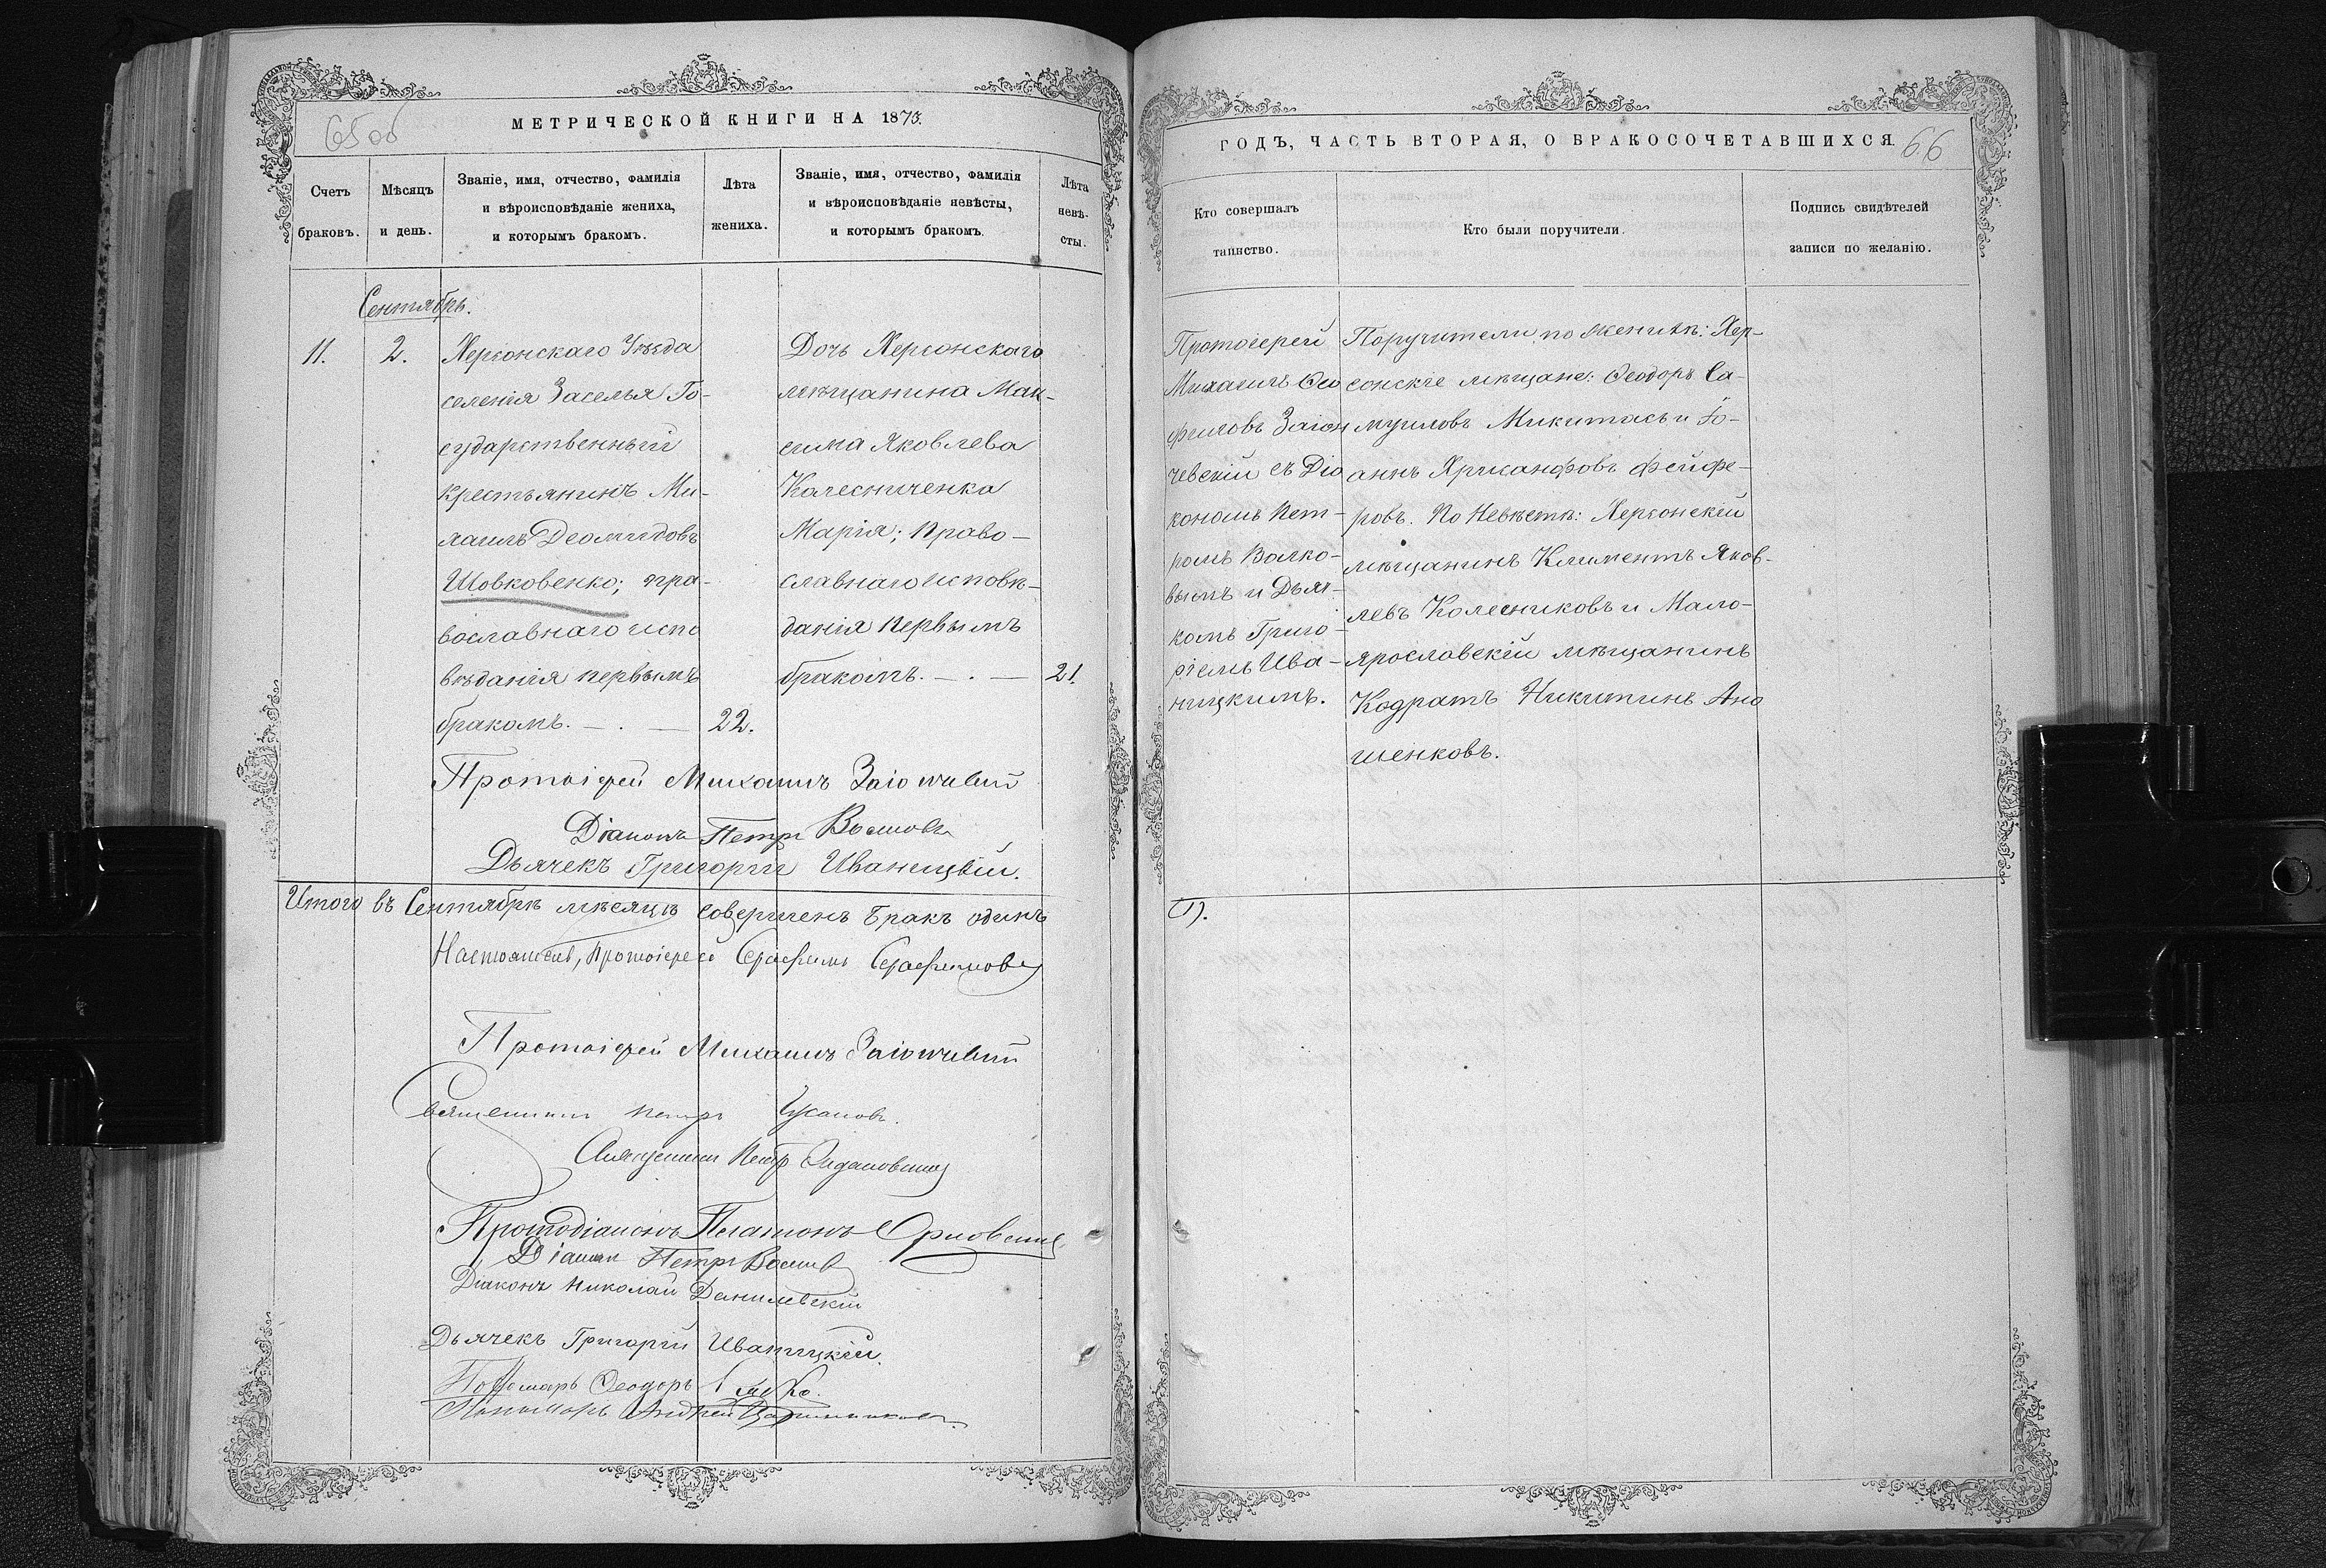 65 об
МЕТРИЧЕСКОЙ КНИГИ НА 1873.
Счетъ
браковъ.
Мѣсяцъ
и день.
Званіе, имя, отчество, фамилія
и вѣроисповѣданіе жениха,
и которымъ бракомъ.
Лѣта
жениха.
Званіе, имя, отчество, фамилія
и вѣроисповѣданіе невѣсты,
и которымъ бракомъ.
Лѣта
невѣ-
сты.
Сентябрь.
11.
2.
Херсонскаго Уѣзда
селенія Заселья Го-
сударственный
крестьянинъ Ми-
хаилъ Деомидовъ
Шовковенко; пра-
вославнаго испо
вѣданія первымъ
бракомъ. — . —
22.
Дочь Херсонскаго
мѣщанина Мак-
сима Яковлева
Колесниченка
Марія; право-
славнаго исповѣ-
данія первымъ
бракомъ. — . —
21.
Протоіерей Михаилъ Заіончевскій
Діаконъ Петръ Волковъ
Дьячекъ Григорій Иваницкій.
Итого въ Сентябрѣ мѣсяцѣ совершенъ бракъ одинъ
Настоятель, Протоіерей Серафимъ Серафимовъ
Протоіерей Михаилъ Заіончевскій
Священникъ Петръ
Священникъ Петръ
Протодіаконъ Платонъ Орловскій
Діаконъ Петръ Волковъ
Діаконъ Николай Данилевскій
Дьячекъ Григорій Иваницкій.
Пономарь Ѳеодоръ
Пономарь Андрей
ГОДЪ, ЧАСТЬ ВТОРАЯ, О БРАКОСОЧЕТАВШИХСЯ.
66
Кто совершалъ
таинство.
Кто были поручители.
Подпись свидѣтелей
записи по желанію.
Протоіерей
Михаилъ Ѳео
филовъ Заіон
чевскій съ Діа
кономъ Пет-
ромъ Волко-
вымъ и Дьяч-
комъ Григо-
ріемъ Ива-
ницкимъ.
Поручители по женихѣ: Хер-
сонскіе мѣщане: Ѳеодоръ Са-
муиловъ Микитась и Іо-
аннъ Хрисанфовъ Фейфе-
ровъ. По Невѣстѣ: Херсонскій
мѣщанинъ Климентъ Яков-
левъ Колесниковъ и Мало-
ярославскій мѣщанинъ
Кодратъ Никитинъ Ано
шенковъ.
(1).